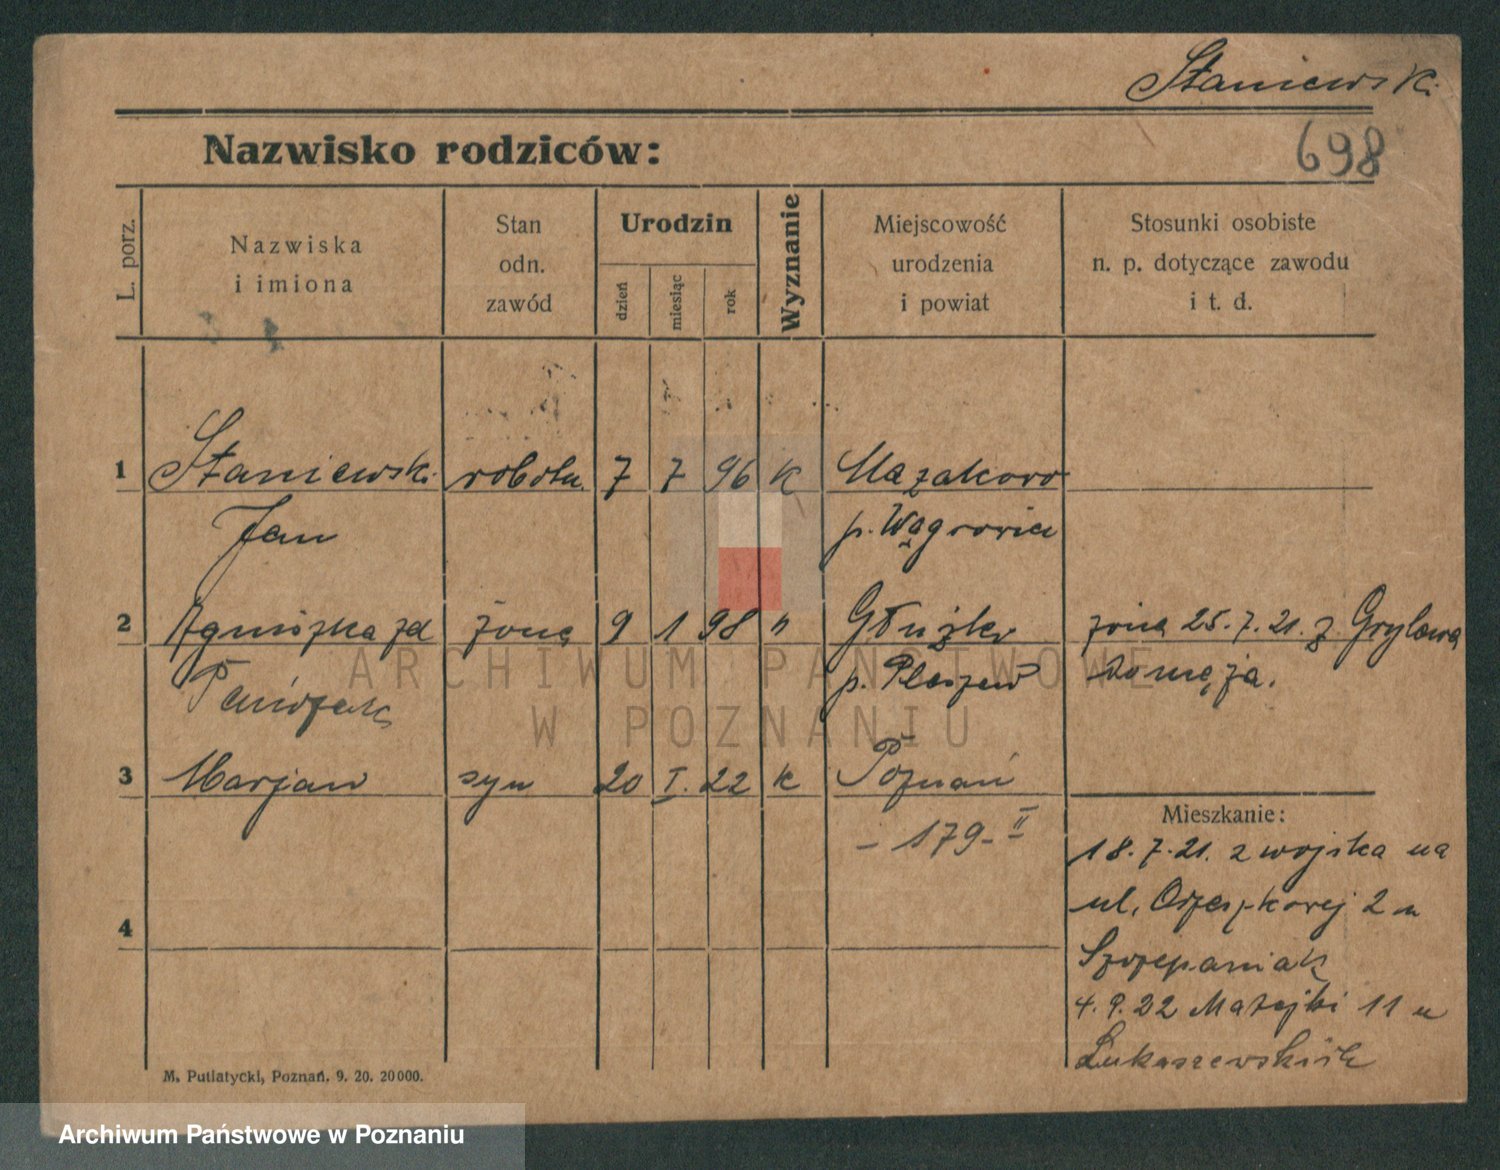 Staniewski
698
Nazwisko rodziców:
L. porz.
Nazwiska
i imiona
Stan
odn.
zawód
Urodzin
dzień
miesiąc
rok
Wyznanie
Miejscowość
urodzenia
i powiat
Stosunki osobiste
n. p. dotyczące zawodu
i t. d.
1 Staniewski robotn. 7 7 96 k
Jan p. Wągrowiec
2 Agnieszka zd żona 9 1 98 " żona 25.7.21. z
p. Pleszew do męża.
3 Marjan syn 20 I. 22 k Poznań
- 179 - II
Mieszkanie:
18.7.21. z wojska na
ul. Orzeszkowej 2 u
4
Szczepaniak
4.9.22 Matejki 11 u
M. Putiatycki, Poznań. 9. 20. 20000.
ARCHIWUM PAŃSTWOWE
W POZNANIU
Archiwum Państwowe w Poznaniu